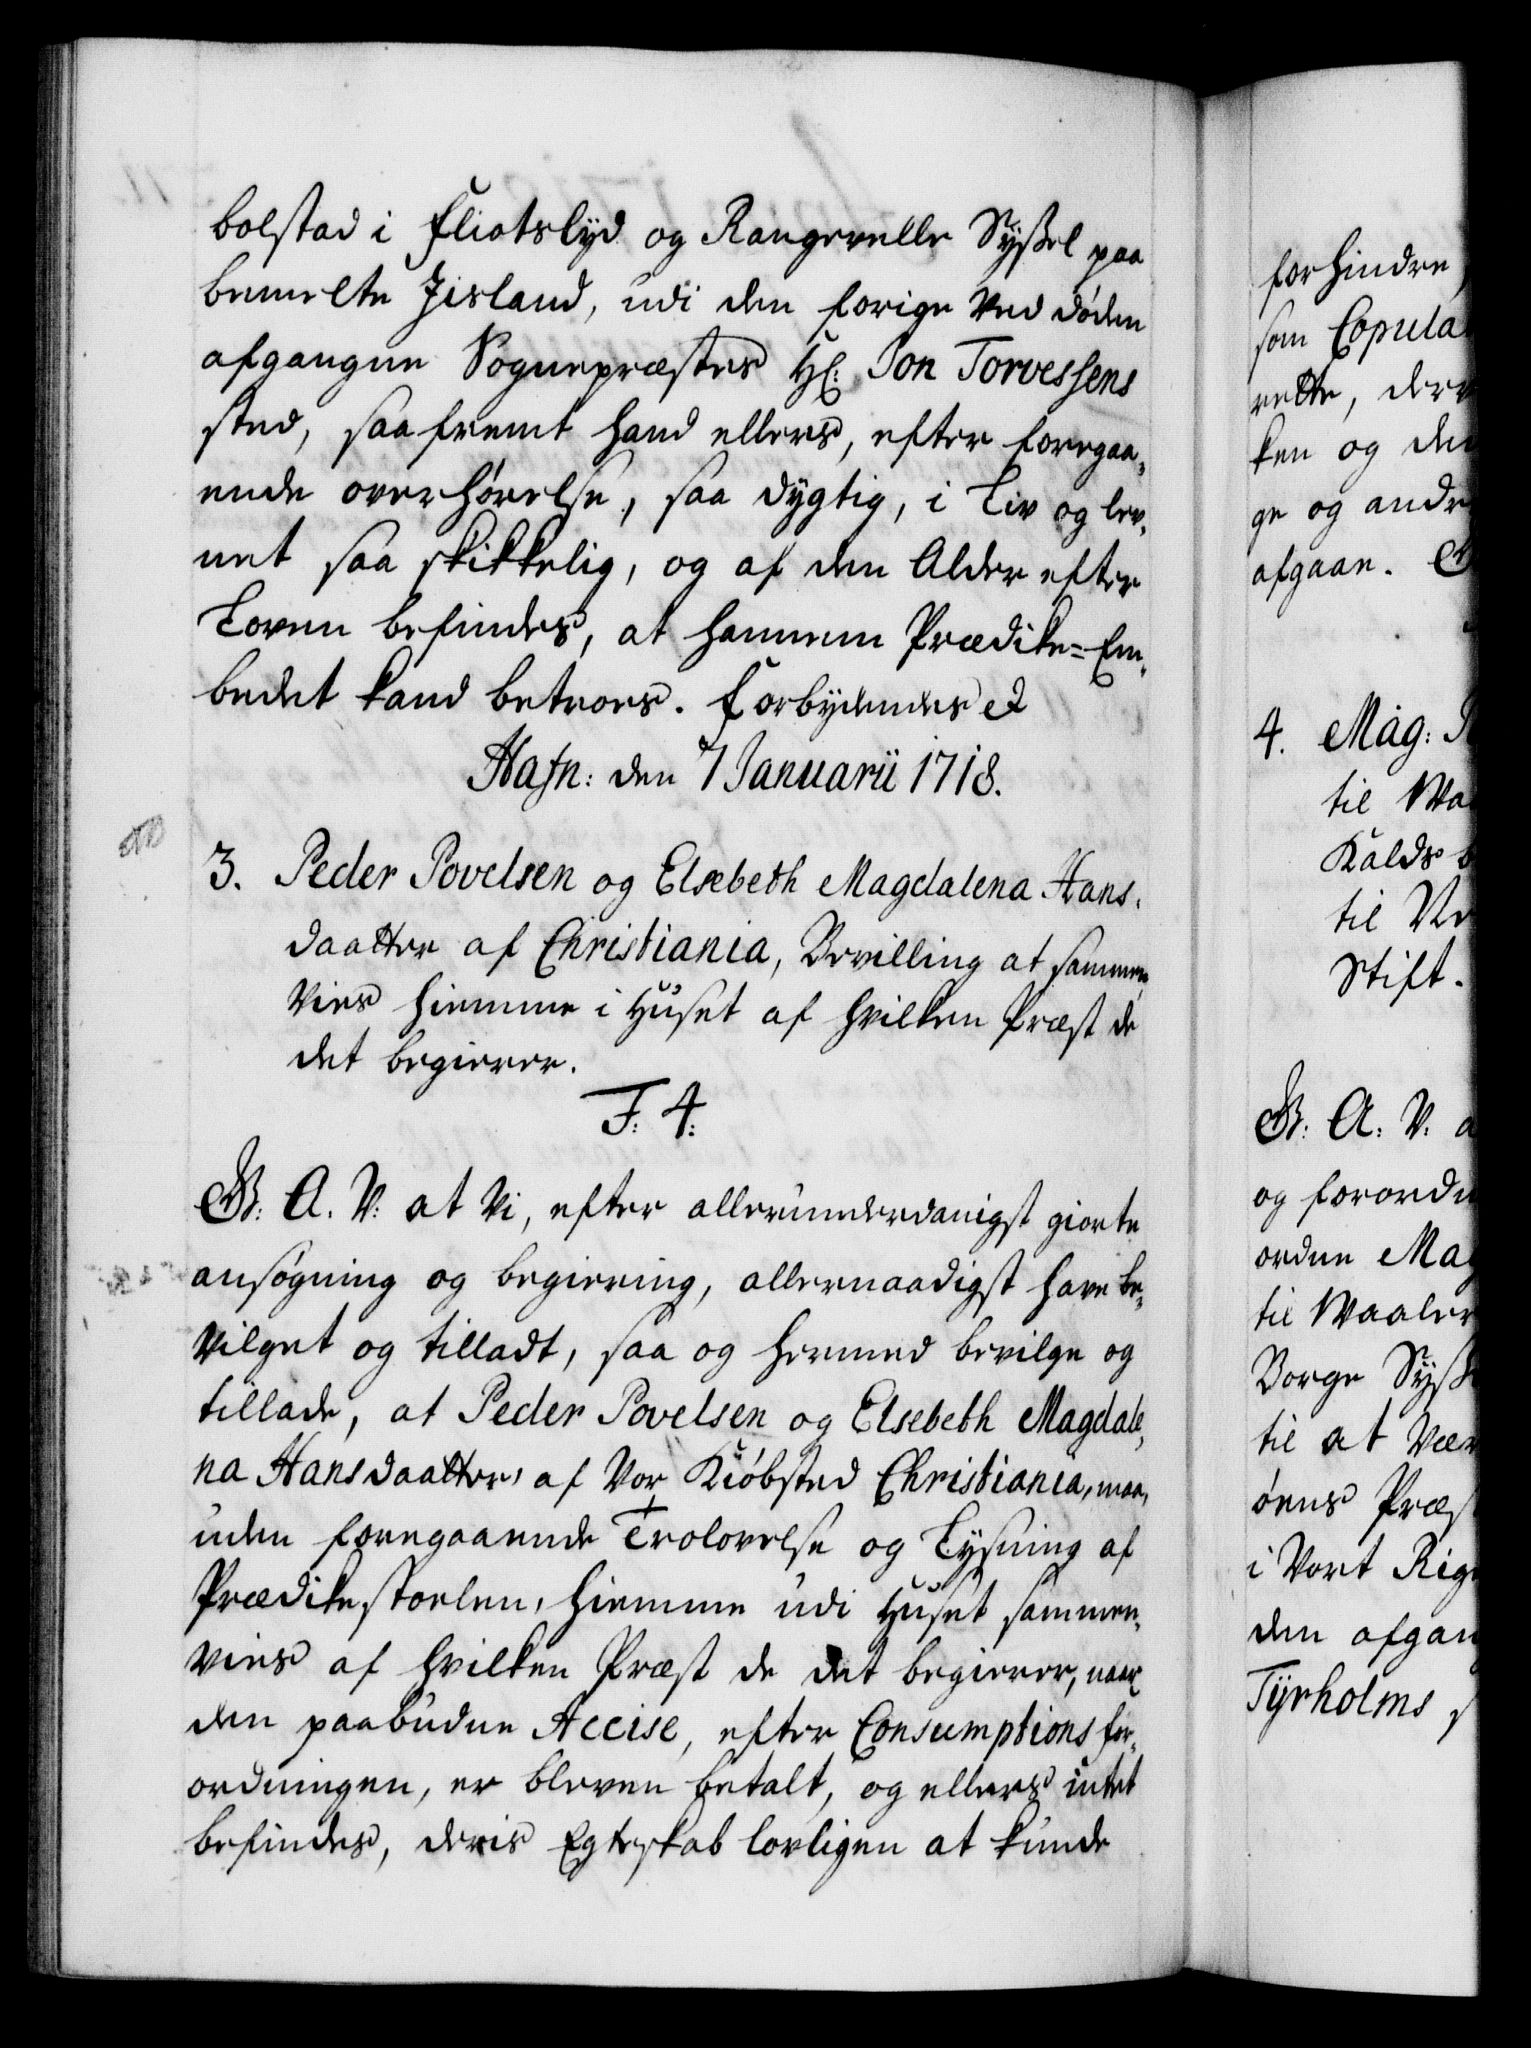 bolstad i Fliotslyd og Rangervelle Syssel paa
bemelte Jisland, udi den forige ved døden
afgangne Sognepræstes Hr: Jon Torvessens
sted, saafremt hand ellers, efter foregaa-
ende overhørelse, saa dygtig, i Liv og lev-
net saa skikkelig, og af den Alder efter
Loven befindes, at hannem Prædike=Em-
bedet kand betroes. Forbydendes etc
Hafn: den 7 Januarii 1718.
3. Peder Povelsen og Elsebeth Magdalena Hans-
daatter af Christiania, Bevilling at sammen
vies hiemme i Huset af hvilken Præst de
det begierer.
F. 4.
G: A. V: at Vi, efter allerunderdanigst giorte
ansøgning og begiering, allernaadigst have be-
vilget og tilladt, saa og hermed bevilge og
tillade, at Peder Povelsen og Elsebeth Magdale-
na Hansdaatter, af Vor Kiøbsted Christiania, maa,
uden foregaaende Trolovelse og Lysning af
Prædikestoelen, hiemme udi Huset sammen-
vies af hvilken Præst de det begierer, naar
den paabudne Accise, efter Consumptions for-
ordningen, er bleven betalt, og ellers intet
befindes, deris Egteskab lovligen at kunde
forhindre,
som Copula
rette, der
ken og den
ge og andr
afgaae.
4. Mag:
til Waa
Kalds b
til
Stift.
G: A: V: a
og forordn
ordne Mag
til Waaler
Borge Sysse
til at vær
øens Præst
i Vort Rig
den afgan
Tyrholms s